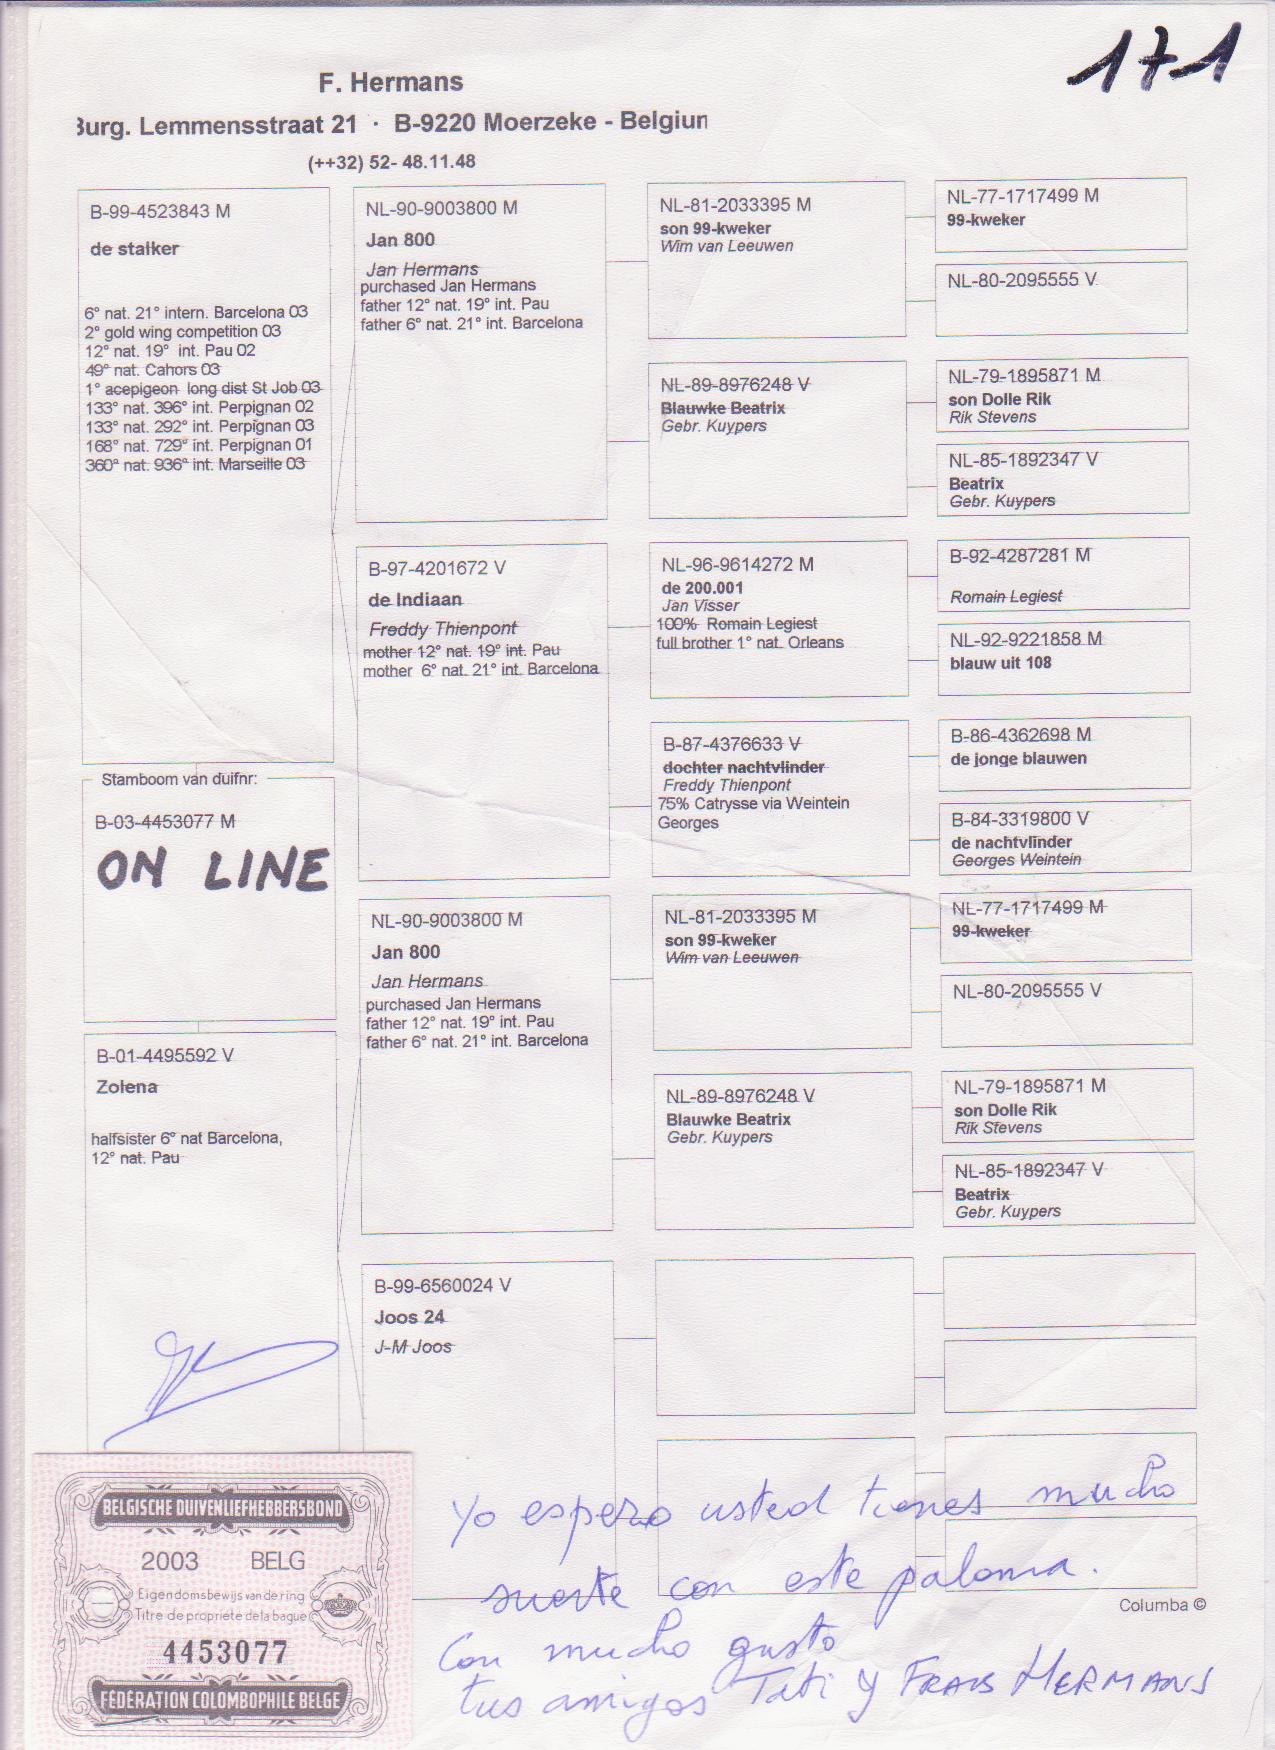 1+1
F. Hermans
Burg. Lemmensstraat 21 · B-9220 Moerzeke - Belgium
(++32) 52- 48.11.48
B-99-4523843 M
de stalker
6° nat. 21° intern. Barcelona 03
2° gold wing competition 03
12° nat. 19° int. Pau 02
49° nat. Cahors 03
1° acepigeon long dist St Job 03
133° nat. 396° int. Perpignan 02
133° nat. 292° int. Perpignan 03
168° nat. 729° int. Perpignan 01
360° nat. 936° int. Marseille 03
Stamboom van duifnr:
B-03-4453077 M
ON LINE
B-01-4495592 V
Zolena
halfsister 6° nat Barcelona,
12° nat. Pau
NL-90-9003800 M
Jan 800
Jan Hermans
purchased Jan Hermans
father 12° nat. 19° int. Pau
father 6° nat. 21° int. Barcelona
B-97-4201672 V
de Indiaan
Freddy Thienpont
mother 12° nat. 19° int. Pau
mother 6° nat. 21° int. Barcelona
NL-90-9003800 M
Jan 800
Jan Hermans
purchased Jan Hermans
father 12° nat. 19° int. Pau
father 6° nat. 21° int. Barcelona
B-99-6560024 V
Joos 24
J-M Joos
NL-81-2033395 M
son 99-kweker
Wim van Leeuwen
NL-89-8976248 V
Blauwke Beatrix
Gebr. Kuypers
NL-96-9614272 M
de 200.001
Jan Visser
100% Romain Legiest
full brother 1° nat. Orleans
B-87-4376633 V
dochter nachtvlinder
Freddy Thienpont
75% Catrysse via Weintein
Georges
NL-81-2033395 M
son 99-kweker
Wim van Leeuwen
NL-89-8976248 V
Blauwke Beatrix
Gebr. Kuypers
NL-77-1717499 M
99-kweker
NL-80-2095555 V
NL-79-1895871 M
son Dolle Rik
Rik Stevens
NL-85-1892347 V
Beatrix
Gebr. Kuypers
B-92-4287281 M
Romain Legiest
NL-92-9221858 M
blauw uit 108
B-86-4362698 M
de jonge blauwen
B-84-3319800 V
de nachtvlinder
Georges Weintein
NL-77-1717499 M
99-kweker
NL-80-2095555 V
NL-79-1895871 M
son Dolle Rik
Rik Stevens
NL-85-1892347 V
Beatrix
Gebr. Kuypers
Columba ©
BELGISCHE DUIVENLIEFHEBBERSBOND
2003 BELG
Eigendomsbewijs van de ring
Titre de propriété de la bague
4453077
FÉDÉRATION COLOMBOPHILE BELGE
Yo espero usted tienes mucho
suerte con este paloma.
Con mucho gusto
tus amigos Tati y FRANS HERMANS